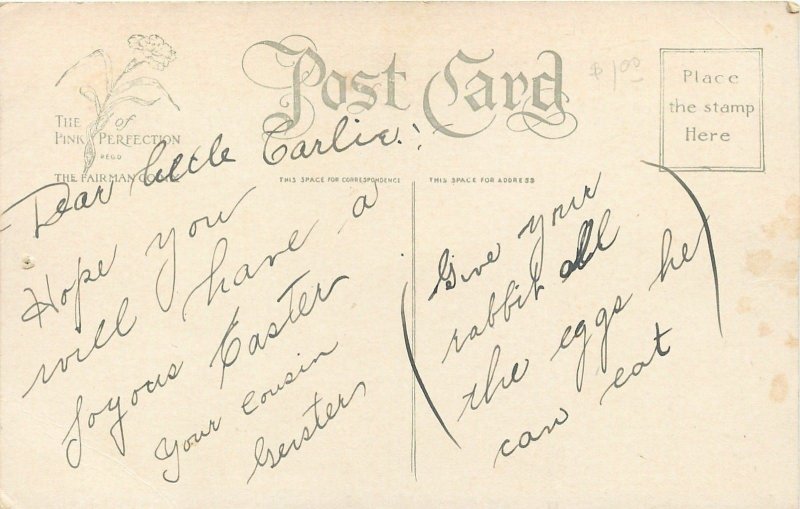 Post Card
$1.00
Place
the stamp
Here
THE of
PINK PERFECTION
REGD
THE FAIRMAN CO.
THIS SPACE FOR CORRESPONDENCE
THIS SPACE FOR ADDRESS
Dear little Carlie!
Hope you
will have a
Joyous Easter
Your cousin
(Give your
rabbit all
the eggs he
can eat)